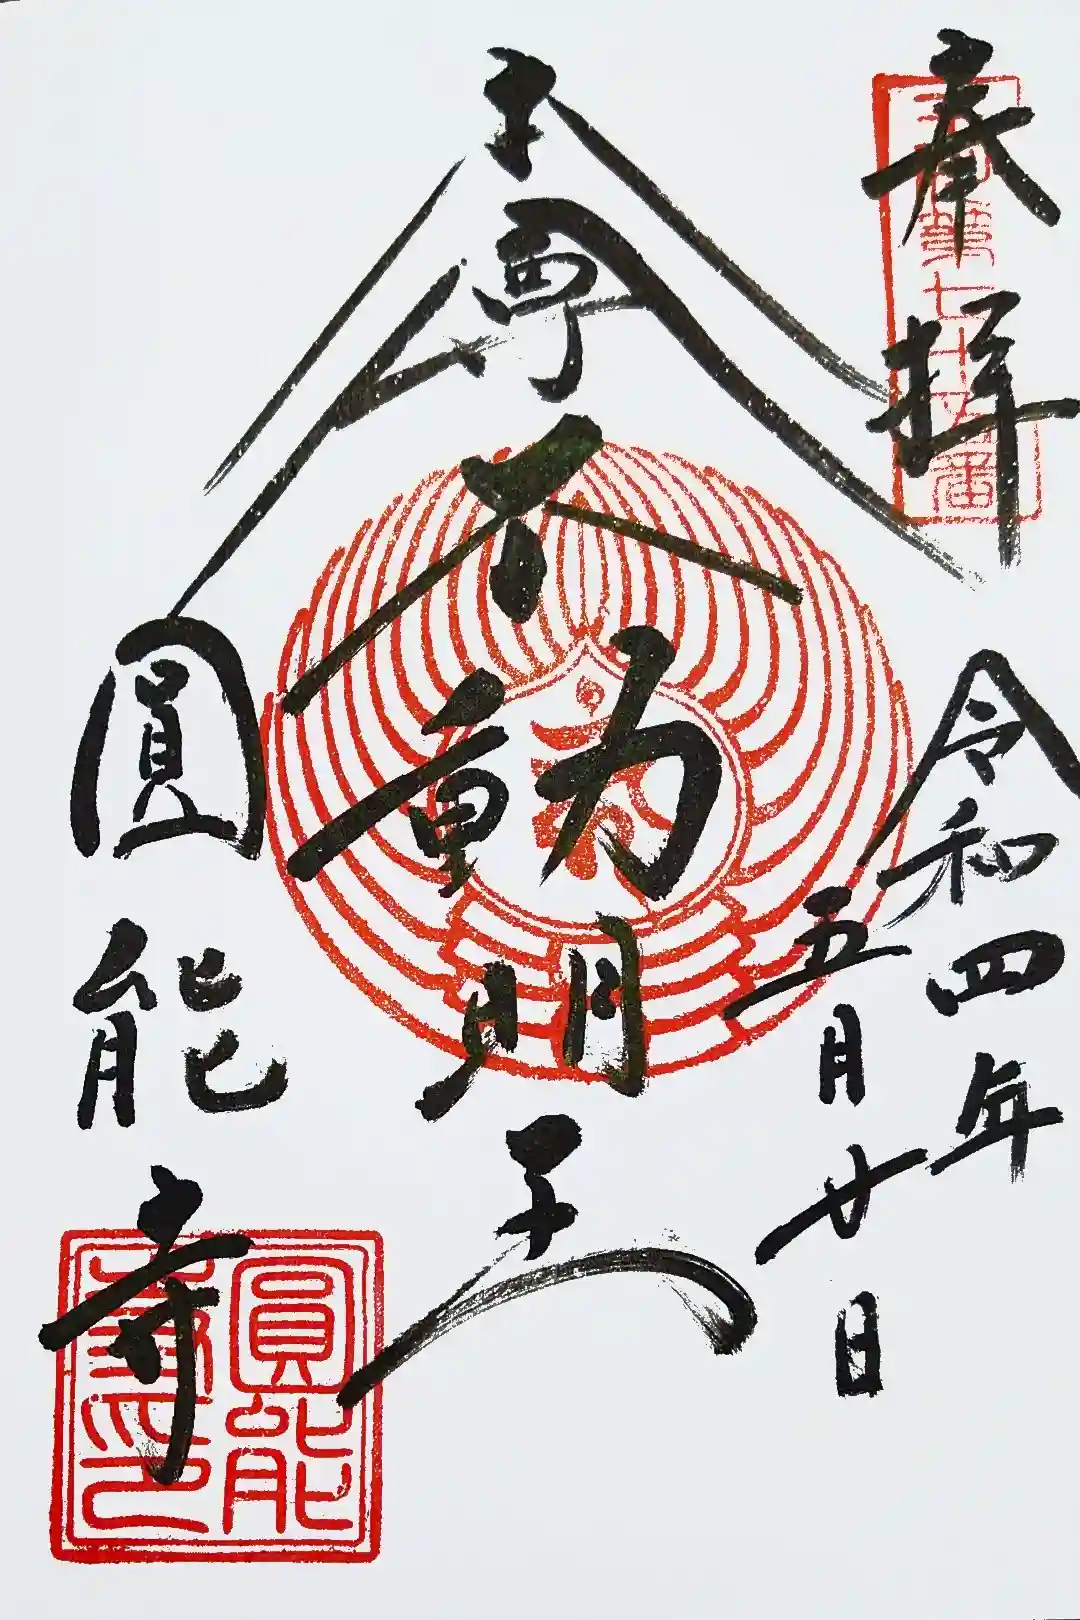 奉拝
第七十五番
令和四年
五月廿日
本尊
不動明王
圓能寺
圓能
寺印